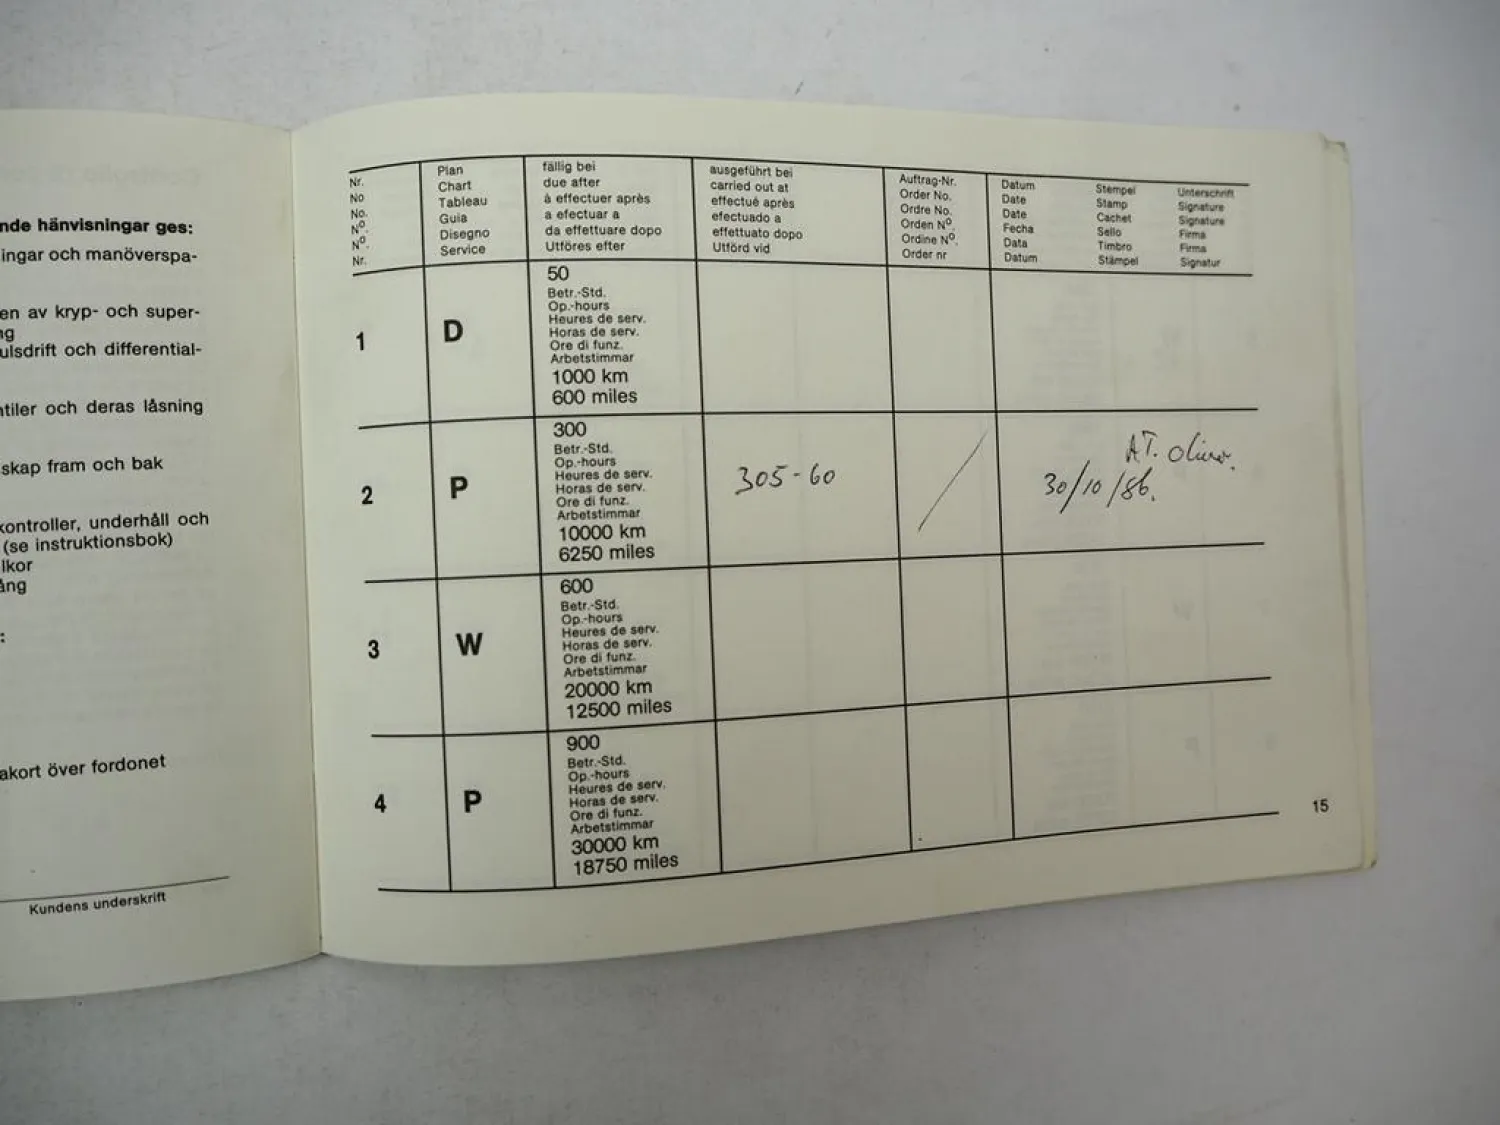 nde hänvisningar ges:
ingar och manöverspa-
en av kryp- och super-
ng
ulsdrift och differential-
ntiler och deras låsning
skap fram och bak
kontroller, underhåll och
(se instruktionsbok)
lkor
ång
:
akort över fordonet
Kundens underskrift
Nr.
No
No.
Nº.
Nº.
Nr.
Plan
Chart
Tableau
Guia
Disegno
Service
fällig bei
due after
à effectuer après
a efectuar a
da effettuare dopo
Utföres efter
ausgeführt bei
carried out at
effectué après
efectuado a
effettuato dopo
Utförd vid
Auftrag-Nr.
Order No.
Ordre No.
Orden Nº.
Ordine Nº.
Order nr
Datum Stempel Unterschrift
Date Stamp Signature
Date Cachet Signature
Fecha Sello Firma
Data Timbro Firma
Datum Stämpel Signatur
1
D
50
Betr.-Std.
Op.-hours
Heures de serv.
Horas de serv.
Ore di funz.
Arbetstimmar
1000 km
600 miles
2
P
300
Betr.-Std.
Op.-hours
Heures de serv.
Horas de serv.
Ore di funz.
Arbetstimmar
10000 km
6250 miles
305-60
/
AT.
30/10/86.
3
W
600
Betr.-Std.
Op.-hours
Heures de serv.
Horas de serv.
Ore di funz.
Arbetstimmar
20000 km
12500 miles
4
P
900
Betr.-Std.
Op.-hours
Heures de serv.
Horas de serv.
Ore di funz.
Arbetstimmar
30000 km
18750 miles
15